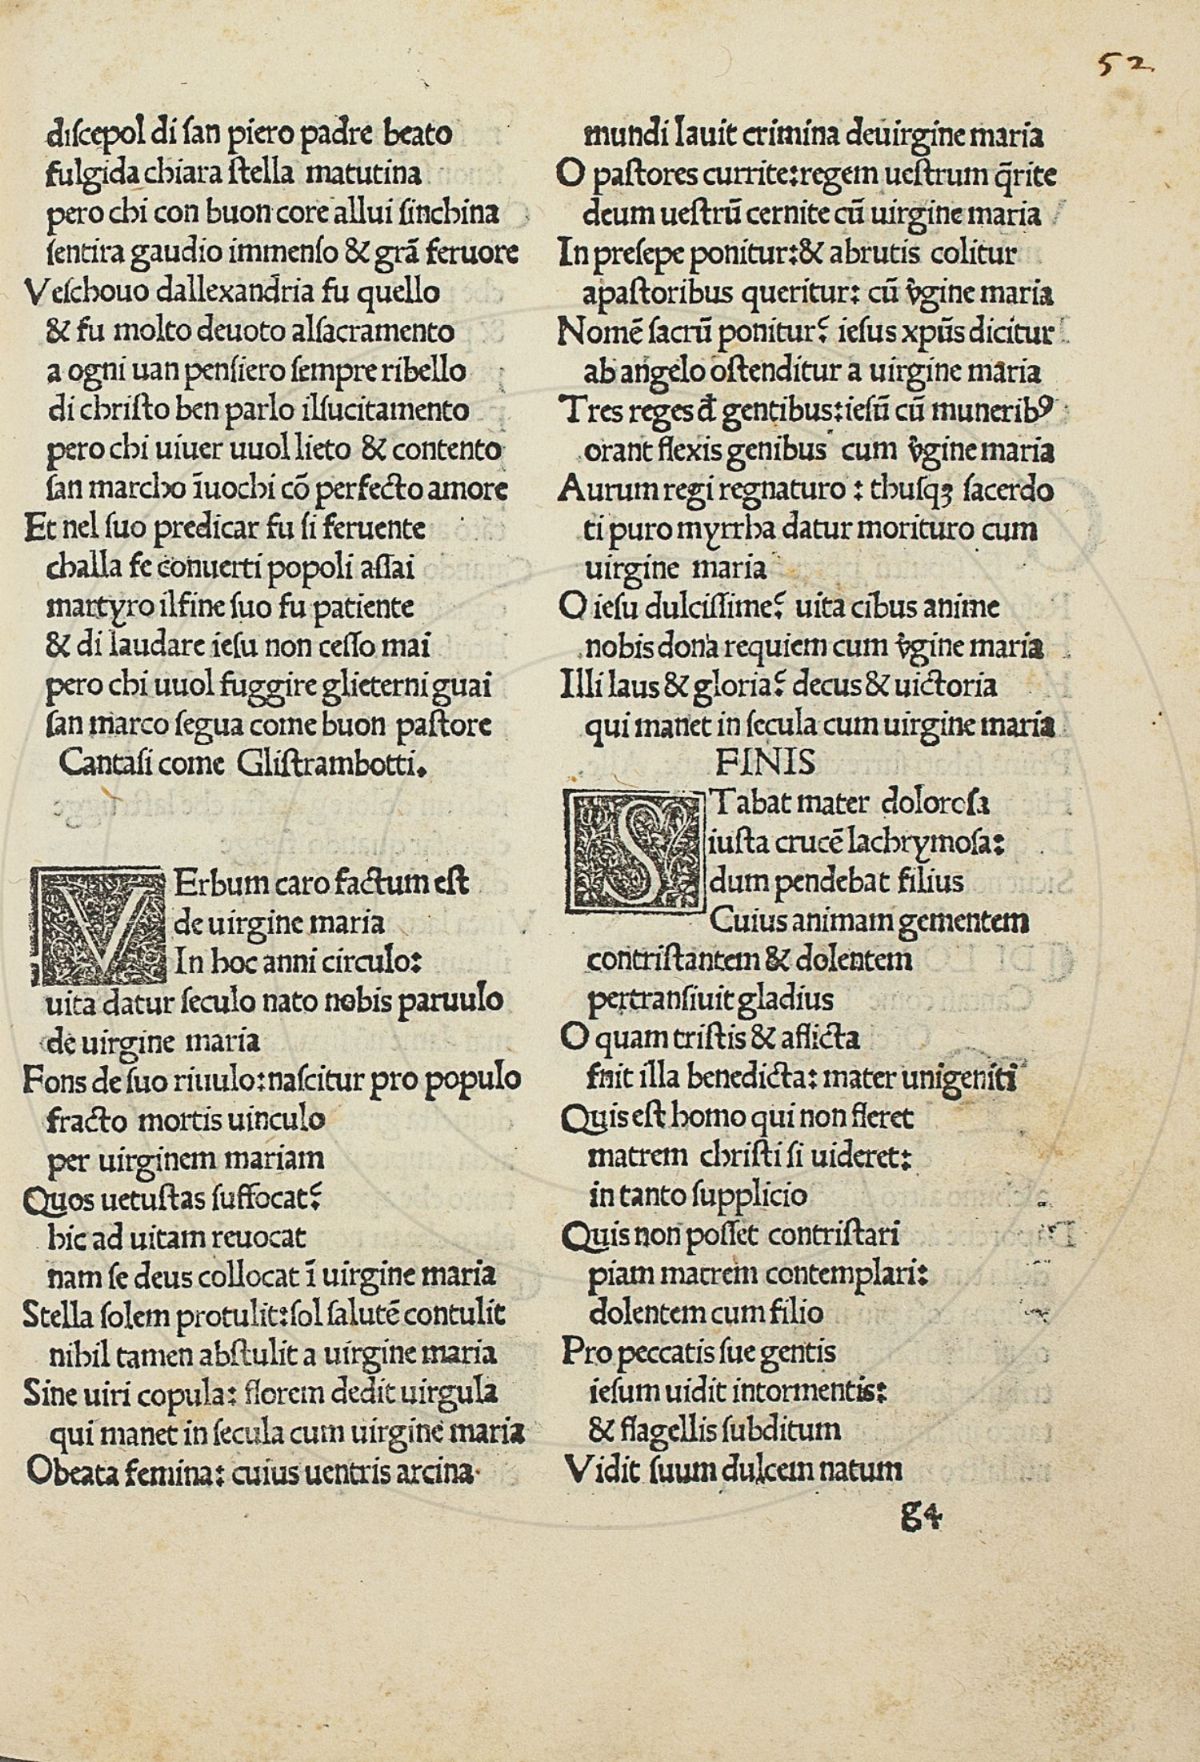 52
diſcepol di ſan piero padre beato
fulgida chiara ſtella matutina
pero chi con buon core allui ſinchina
ſentira gaudio immenſo & grã feruore
Veſchouo dallexandria fu quello
& fu molto deuoto alſacramento
a ogni uan penſiero ſempre ribello
di chriſto ben parlo ilſucitamento
pero chi uiuer uuol lieto & contento
ſan marcho ĩuochi cõ perfecto amore
Et nel ſuo predicar fu ſi feruente
challa fe conuerti popoli aſſai
martyro ilfine ſuo fu patiente
& di laudare ieſu non ceſſo mai
pero chi uuol fuggire glieterni guai
ſan marco ſegua come buon paſtore
Cantaſi come Gliſtrambotti.
VErbum caro factum eſt
de uirgine maria
In hoc anni circulo:
uita datur ſeculo nato nobis paruulo
de uirgine maria
Fons de ſuo riuulo:naſcitur pro populo
fracto mortis uinculo
per uirginem mariam
Quos uetuſtas ſuffocat:
hic ad uitam reuocat
nam ſe deus collocat ĩ uirgine maria
Stella ſolem protulit:ſol ſalutẽ contulit
nihil tamen abſtulit a uirgine maria
Sine uiri copula: florem dedit uirgula
qui manet in ſecula cum uirgine maria
Obeata femina: cuius uentris arcina
mundi lauit crimina deuirgine maria
O paſtores currite:regem ueſtrum q̃rite
deum ueſtrũ cernite cũ uirgine maria
In preſepe ponitur:& abrutis colitur
apaſtoribus queritur: cũ v̄gine maria
Nomẽ ſacrũ ponitur: ieſus xpũs dicitur
ab angelo oſtenditur a uirgine maria
Tres reges đ gentibus:ieſũ cũ muneribꝰ
orant flexis genibus cum v̄gine maria
Aurum regi regnaturo : thuſqꝫ ſacerdo
ti puro myrrha datur morituro cum
uirgine maria
O ieſu dulciſſime: uita cibus anime
nobis dona requiem cum v̄gine maria
Illi laus & gloria: decus & uictoria
qui manet in ſecula cum uirgine maria
FINIS
STabat mater doloroſa
iuſta crucẽ lachrymoſa:
dum pendebat filius
Cuius animam gementem
contriſtantem & dolentem
pertranſiuit gladius
O quam triſtis & aflicta
fnit illa benedicta: mater unigeniti
Quis eſt homo qui non fleret
matrem chriſti ſi uideret:
in tanto ſupplicio
Quis non poſſet contriſtari
piam matrem contemplari:
dolentem cum filio
Pro peccatis ſue gentis
ieſum uidit intormentis:
& flagellis ſubditum
Vidit ſuum dulcem natum
g4